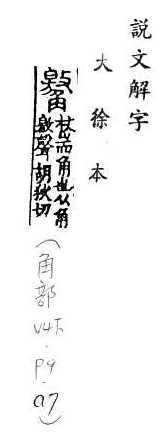 說文解字
大徐本
杖耑角也从角
敫聲胡狄切
(角部 V4下．P9．a7)